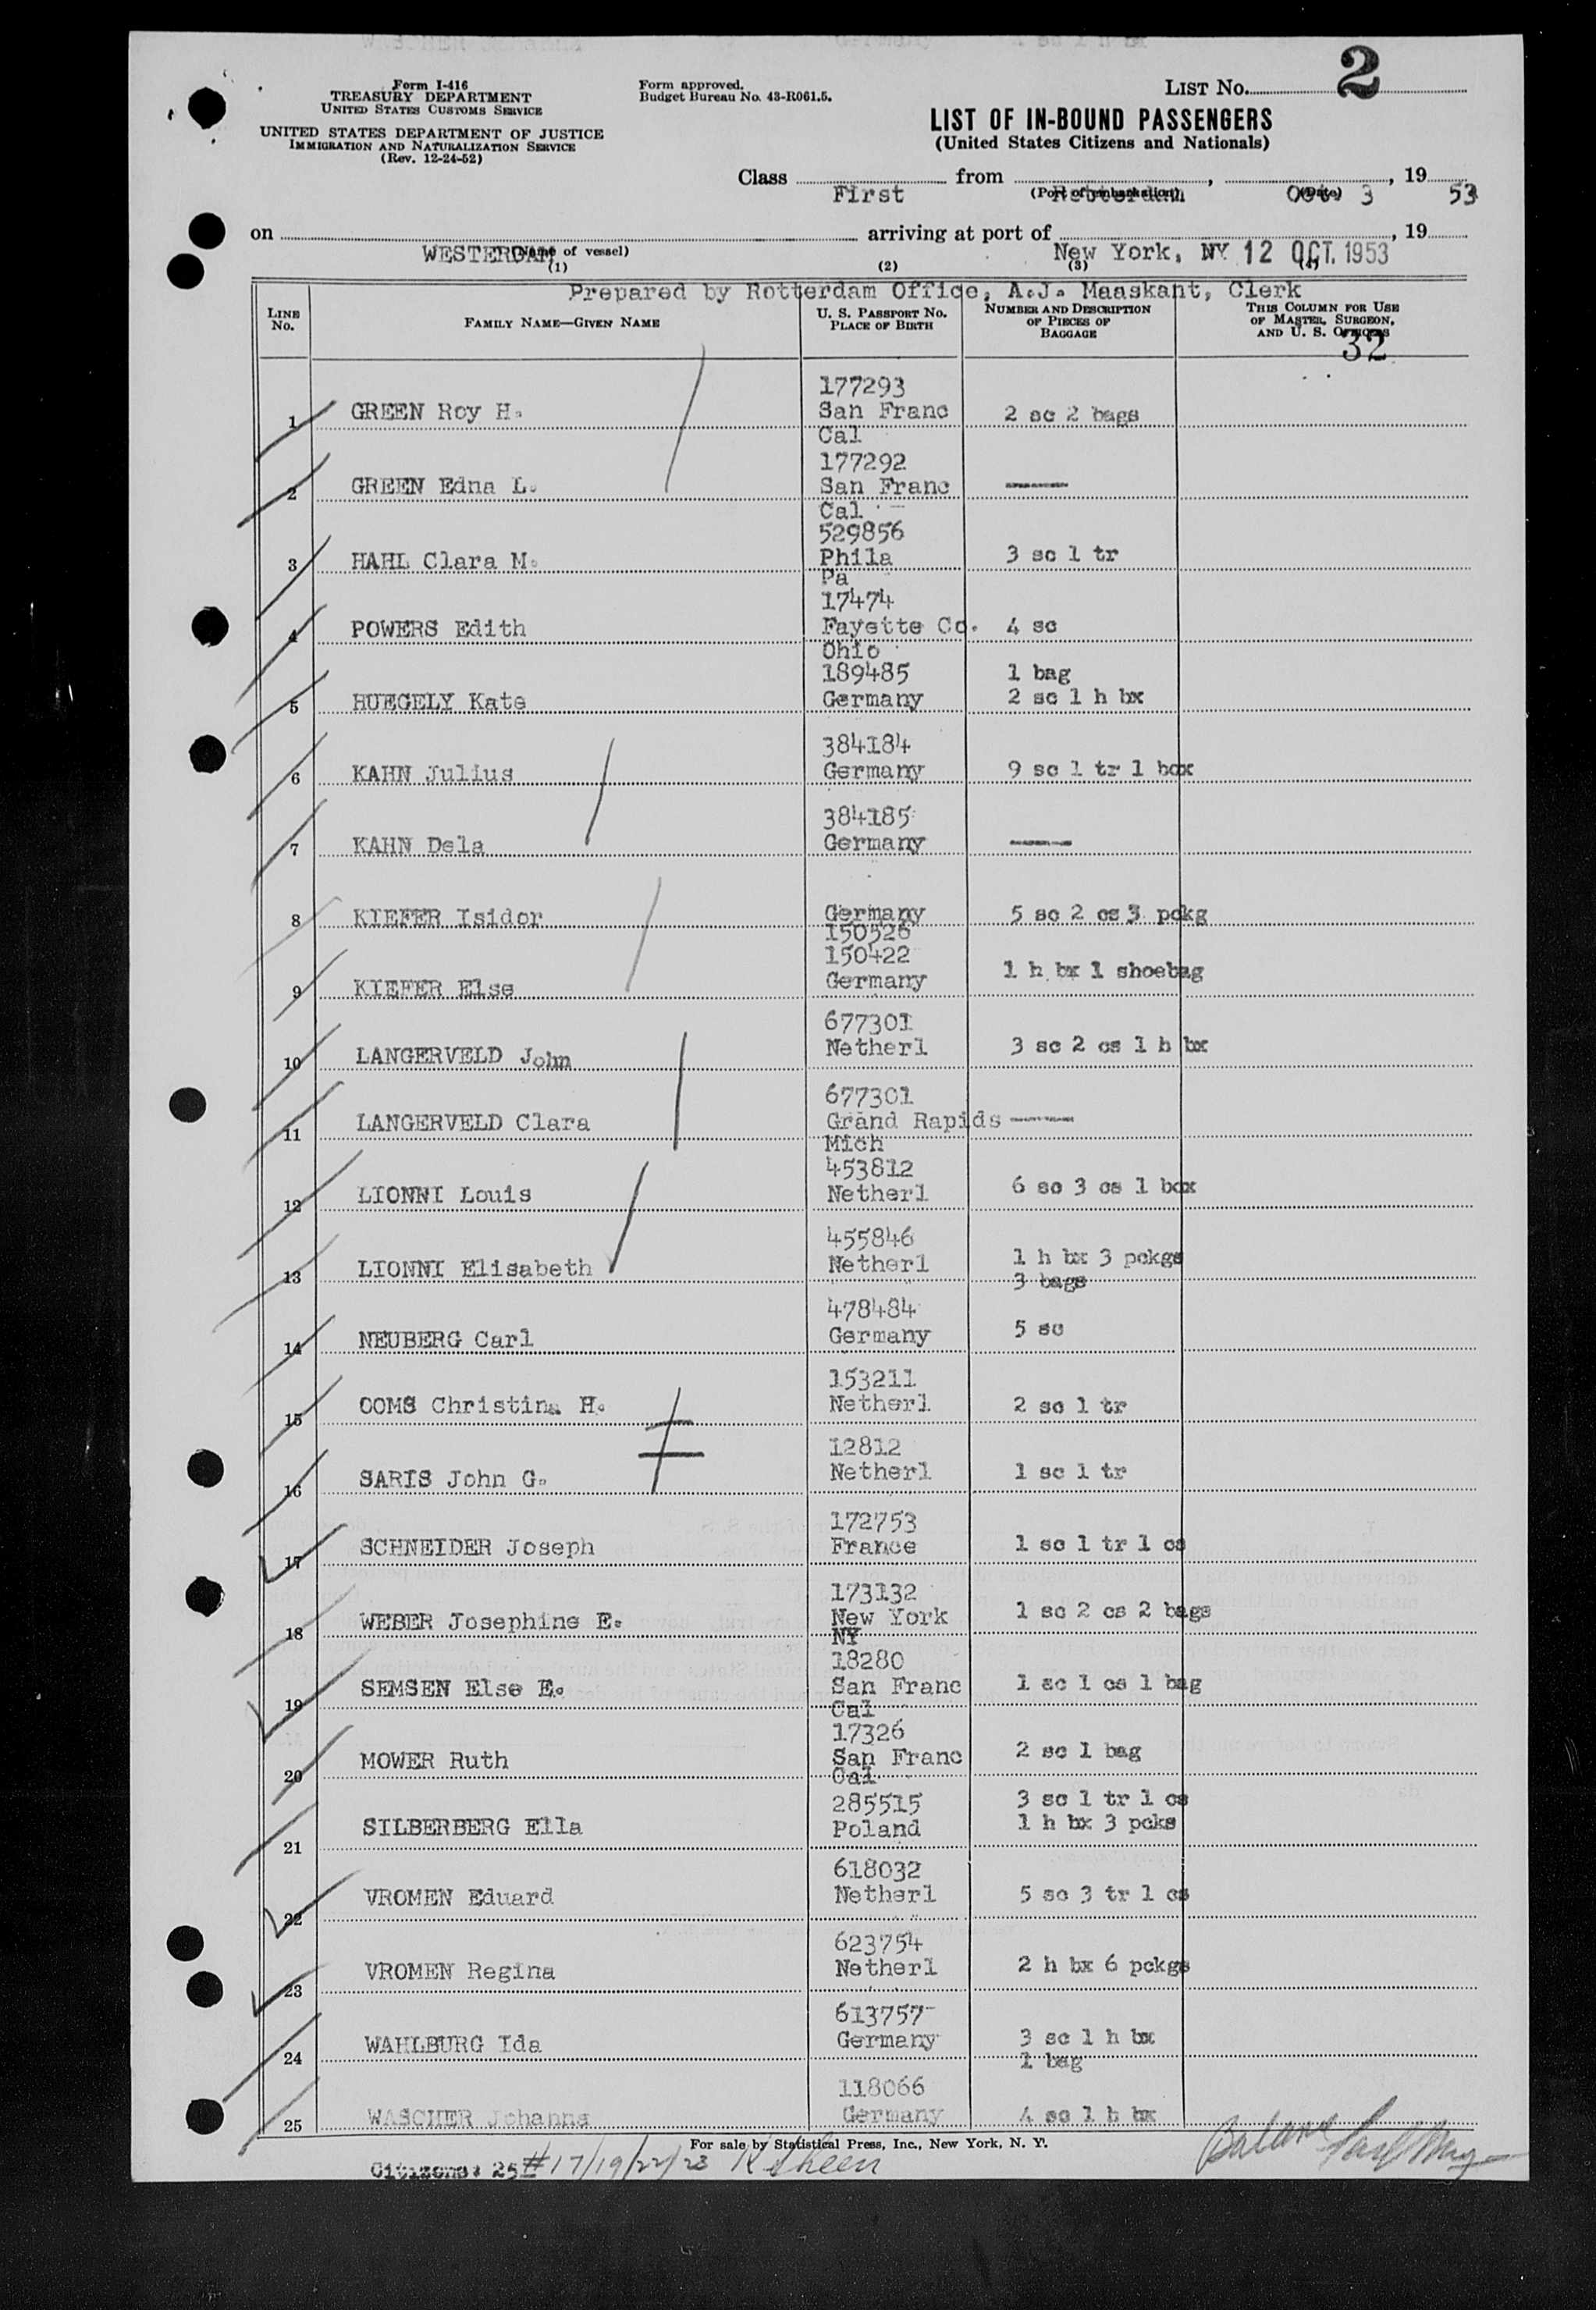 Form I-416
TREASURY DEPARTMENT
UNITED STATES CUSTOMS SERVICE
UNITED STATES DEPARTMENT OF JUSTICE
IMMIGRATION AND NATURALIZATION SERVICE
(Rev. 12-24-52)
Form approved.
Budget Bureau No. 43-R061.5.
LIST No. 2
LIST OF IN-BOUND PASSENGERS
(United States Citizens and Nationals)
Class First from Rotterdam, Oct. 3, 1953
(Port of embarkation) (Date)
on WESTERDAM arriving at port of New York, NY 12 OCT. 1953, 19
(Name of vessel)
(1) (2) (3)
Prepared by Rotterdam Office, A.J. Maaskant, Clerk
LINE No.
FAMILY NAME—GIVEN NAME
U. S. PASSPORT NO. PLACE OF BIRTH
NUMBER AND DESCRIPTION OF PIECES OF BAGGAGE
THIS COLUMN FOR USE OF MASTER, SURGEON, AND U. S. OFFICERS
32
1 GREEN Roy H. 177293 San Franc Cal 2 sc 2 bags
2 GREEN Edna L. 177292 San Franc Cal ------
3 HAHL Clara M. 529856 Phila Pa 3 sc 1 tr
4 POWERS Edith 17474 Fayette Co. Ohio 4 sc
5 HUEGELY Kate 189485 Germany 1 bag 2 sc 1 h bx
6 KAHN Julius 384184 Germany 9 sc 1 tr 1 box
7 KAHN Dela 384185 Germany ------
8 KIEFER Isidor Germany 150526 5 sc 2 cs 3 pckg
9 KIEFER Else 150422 Germany 1 h bx 1 shoebag
10 LANGERVELD John 677301 Netherl 3 sc 2 cs 1 h bx
11 LANGERVELD Clara 677301 Grand Rapids Mich ------
12 LIONNI Louis 453812 Netherl 6 sc 3 cs 1 box
13 LIONNI Elisabeth 455846 Netherl 1 h bx 3 pckgs 3 bags
14 NEUBERG Carl 478484 Germany 5 sc
15 OOMS Christina H. 153211 Netherl 2 sc 1 tr
16 SARIS John G. 12812 Netherl 1 sc 1 tr
17 SCHNEIDER Joseph 172753 France 1 sc 1 tr 1 cs
18 WEBER Josephine E. 173132 New York NY 1 sc 2 cs 2 bags
19 SEMSEN Else E. 18280 San Franc Cal 1 sc 1 cs 1 bag
20 MOWER Ruth 17326 San Franc Cal 2 sc 1 bag
21 SILBERBERG Ella 285515 Poland 3 sc 1 tr 1 cs 1 h bx 3 pcks
22 VROMEN Eduard 618032 Netherl 5 sc 3 tr 1 cs
23 VROMEN Regina 623754 Netherl 2 h bx 6 pckgs
24 WAHLBURG Ida 613757 Germany 3 sc 1 h bx 1 bag
25 WASCHER Johanna 118066 Germany 4 sc 1 h bx
For sale by Statistical Press, Inc., New York, N. Y.
Citizens: 25 #17/19/22/23